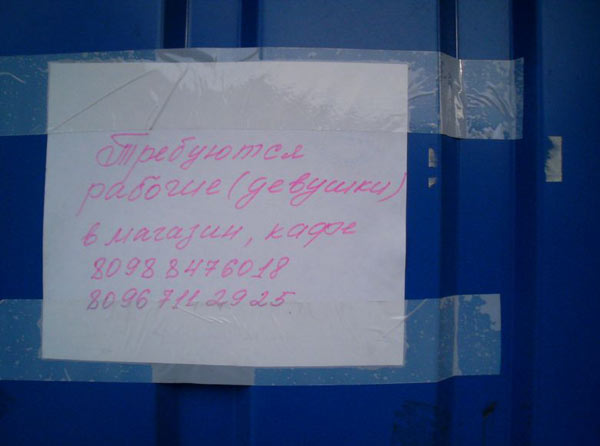 Требуются
рабочие (девушки)
в магазин, кафе
80988476018
80967112925